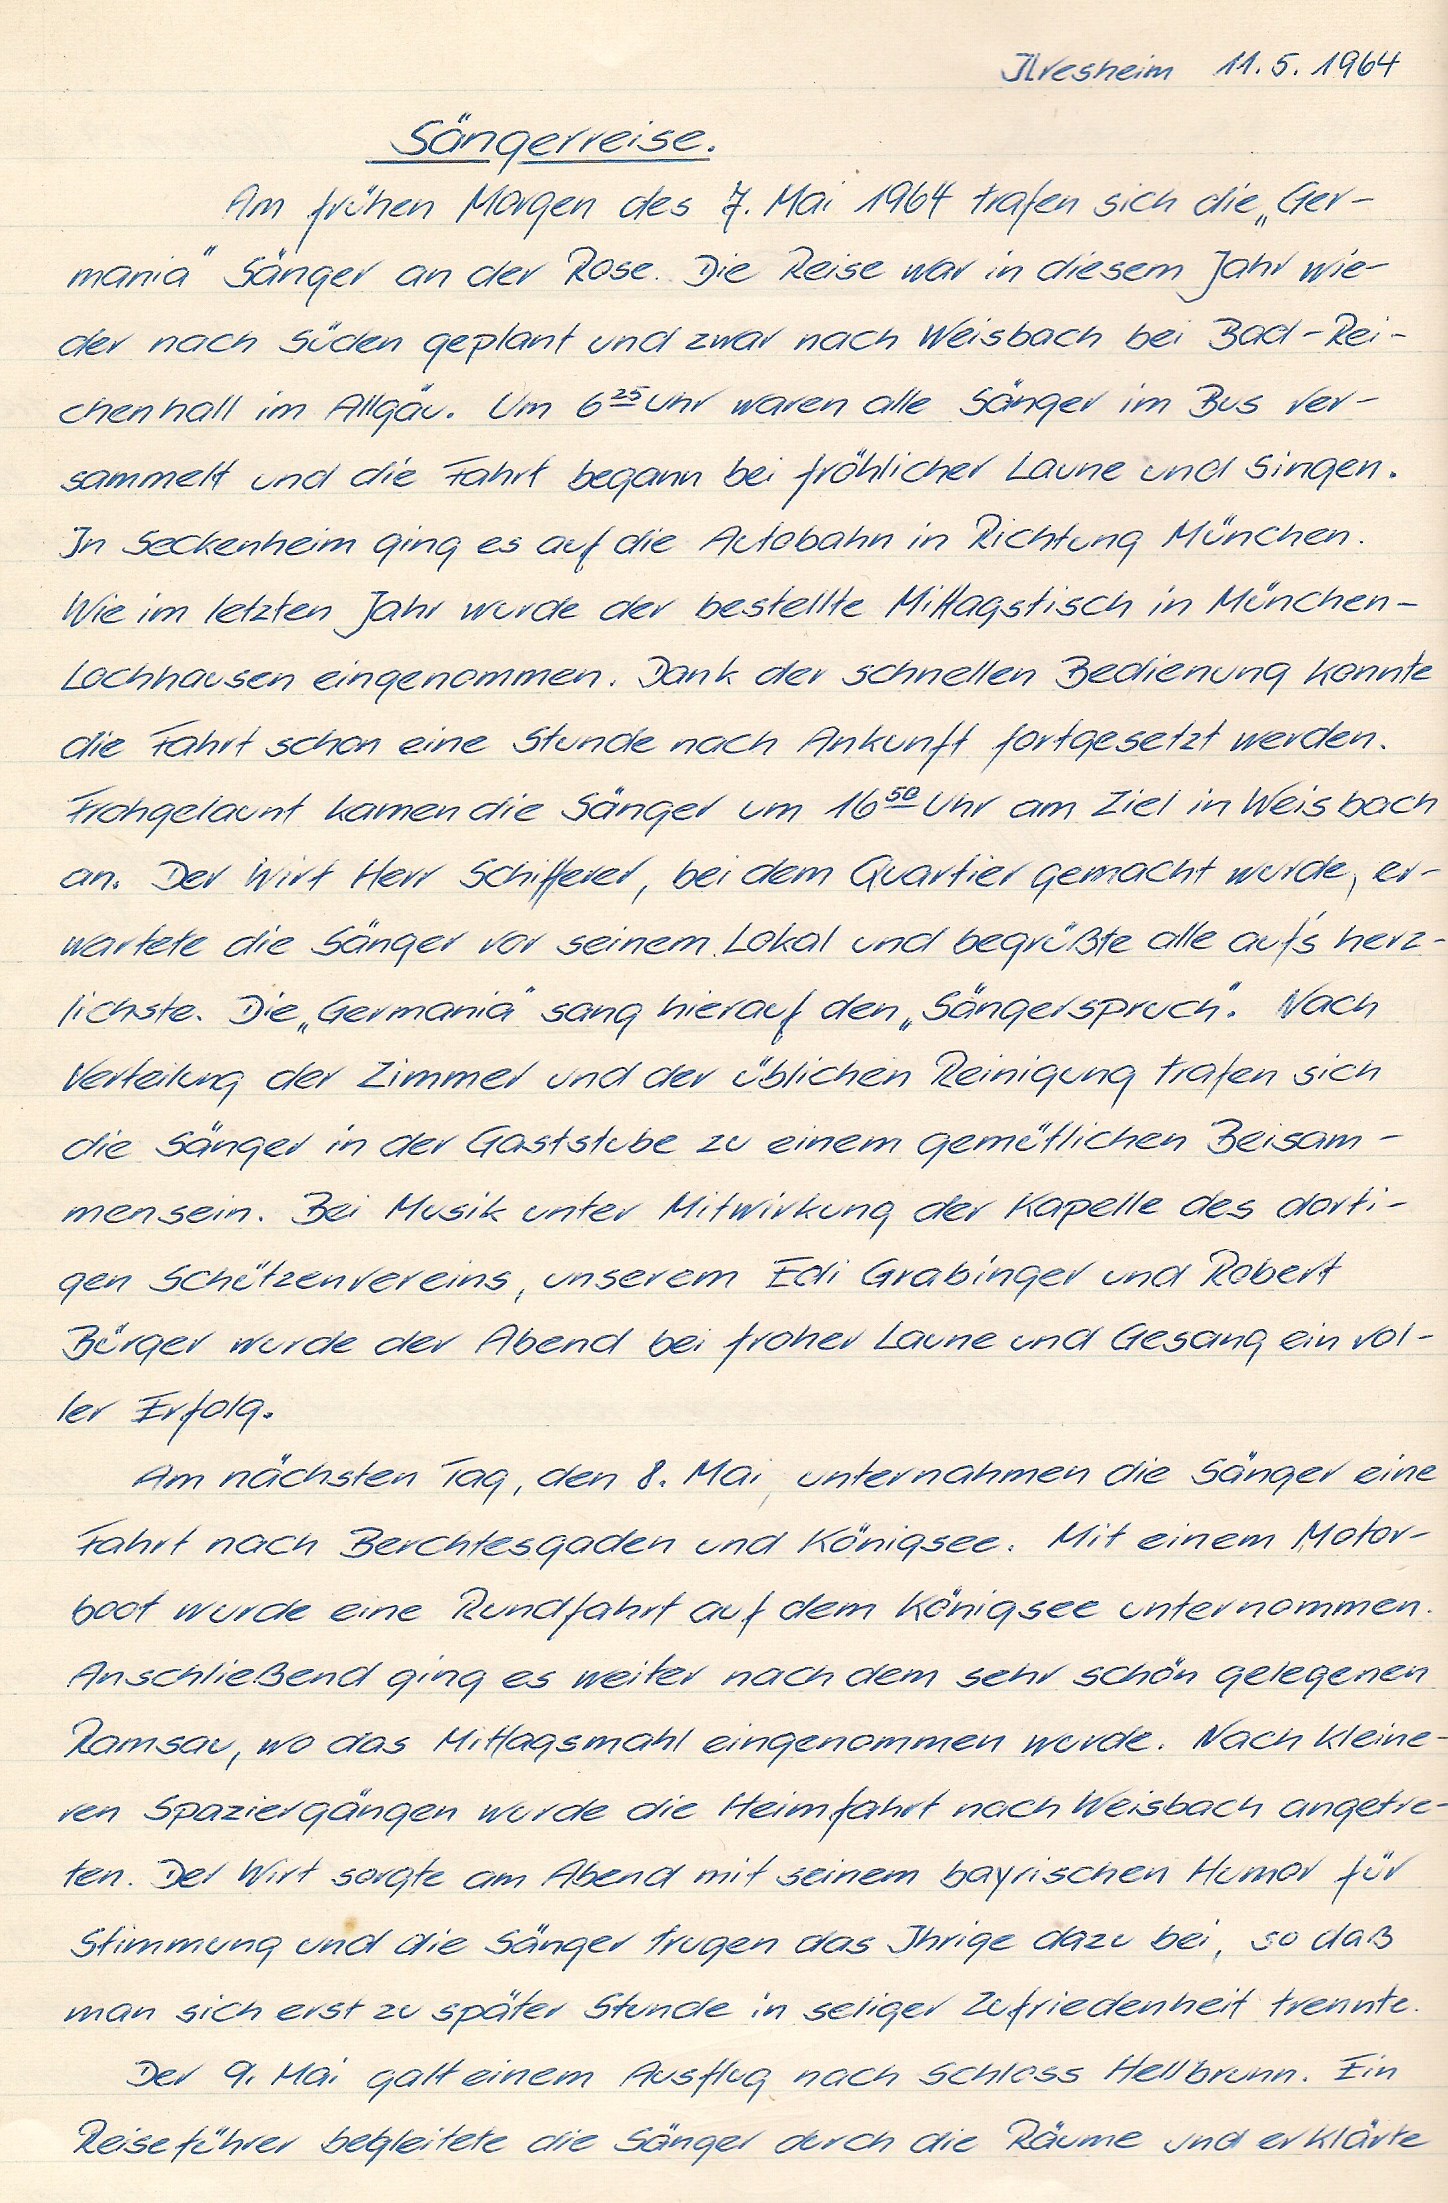 Ilvesheim 11.5.1964
Sängerreise.
Am frühen Morgen des 7. Mai 1964 trafen sich die „Ger-
mania" Sänger an der Rose. Die Reise war in diesem Jahr wie-
der nach Süden geplant und zwar nach Weisbach bei Bad-Rei-
chenhall im Allgäu. Um 6²⁵ Uhr waren alle Sänger im Bus ver-
sammelt und die Fahrt begann bei fröhlicher Laune und Singen.
In Seckenheim ging es auf die Autobahn in Richtung München.
Wie im letzten Jahr wurde der bestellte Mittagstisch in München-
Lochhausen eingenommen. Dank der schnellen Bedienung konnte
die Fahrt schon eine Stunde nach Ankunft fortgesetzt werden.
Frohgelaunt kamen die Sänger um 16⁵⁰ Uhr am Ziel in Weisbach
an. Der Wirt Herr Schifferer, bei dem Quartier gemacht wurde, er-
wartete die Sänger vor seinem Lokal und begrüßte alle auf's herz-
lichste. Die „Germania" sang hierauf den „Sängerspruch". Nach
Verteilung der Zimmer und der üblichen Reinigung trafen sich
die Sänger in der Gaststube zu einem gemütlichen Beisam-
mensein. Bei Musik unter Mitwirkung der Kapelle des dorti-
gen Schützenvereins, unserem Edi Grabinger und Robert
Bürger wurde der Abend bei froher Laune und Gesang ein vol-
ler Erfolg.
Am nächsten Tag, den 8. Mai, unternahmen die Sänger eine
Fahrt nach Berchtesgaden und Königsee. Mit einem Motor-
boot wurde eine Rundfahrt auf dem Königsee unternommen.
Anschließend ging es weiter nach dem sehr schön gelegenen
Ramsau, wo das Mittagsmahl eingenommen wurde. Nach kleine-
ren Spaziergängen wurde die Heimfahrt nach Weisbach angetre-
ten. Der Wirt sorgte am Abend mit seinem bayrischen Humor für
Stimmung und die Sänger trugen das Ihrige dazu bei, so daß
man sich erst zu später Stunde in seliger Zufriedenheit trennte.
Der 9. Mai galt einem Ausflug nach Schloss Hellbrunn. Ein
Reiseführer begleitete die Sänger durch die Räume und erklärte